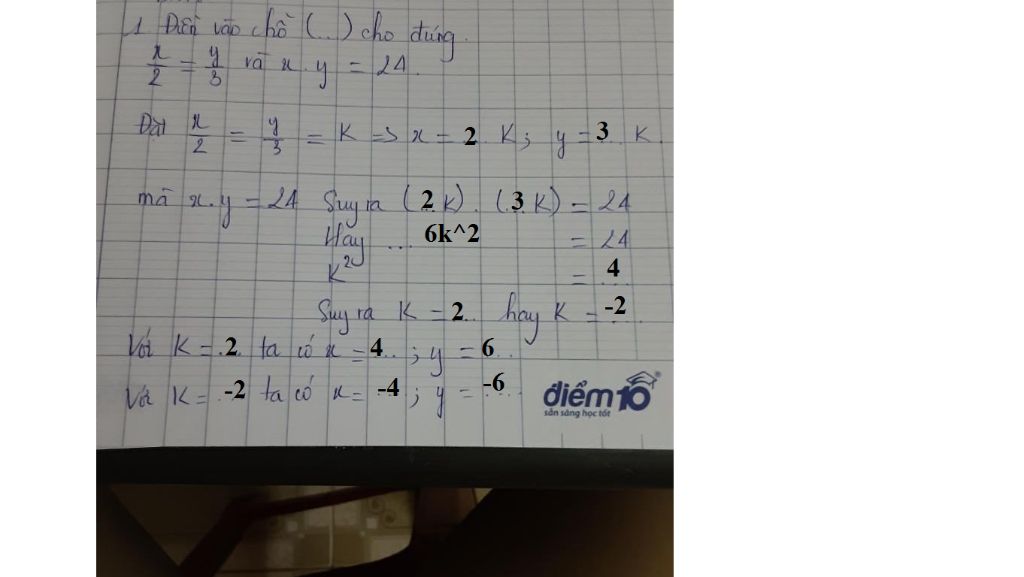 1 Điền vào chỗ (...) cho đúng.
x/2 = y/3 và x.y = 24.
Đặt x/2 = y/3 = K => x = 2. K; y = 3.. K.
mà x.y = 24 Suy ra (2 K). (3 K) = 24
Hay ... 6k^2 = 24
K² = 4
Suy ra K = 2.. hay K = -2
Với K = .2. ta có x = 4..; y = 6..
Với K = -2 ta có x = -4.; y = -6
điểm10
sẵn sàng học tốt